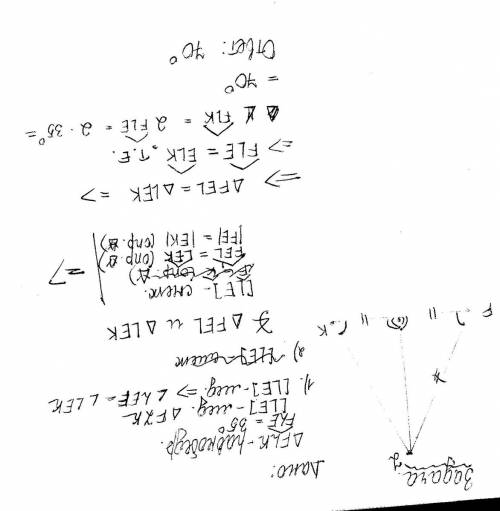 Задача
L
F
E
K
Дано:
△FLK - равнобедр.
FLE = 35°
[LE] - мед. △FLK
1). [LE] - мед. => ∠LEF = ∠LEK
2)
△FEL и △LEK
[LE] - смеж.
FEL = LEK (опр.)
|FE| = |EK| (опр.)
=>
=> △FEL = △LEK =>
=> FLE = ELK. Т.Е.
FLK = 2 FLE = 2 · 35° =
= 70°
Ответ: 70°